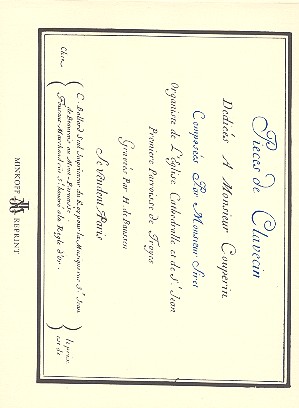 Pieces de Clavecin
Dediées A Monsieur Couperin
Composées Par Monsieur Siret
Organiste de L'Eglise Cathedralle et de St. Jean
Premiere Parroisse de Troyes
Gravées Par H. de Baussen
Se Vendent Paris
Chez
C. Ballard Seul Imprimeur du Roy pour la Musique rüe St. Jean
de Beauvais au Mont Parnasse
Foucaut Marchand rüe St. Honoré a la Regle d'Or.
le prix
est de
MINKOFF REPRINT